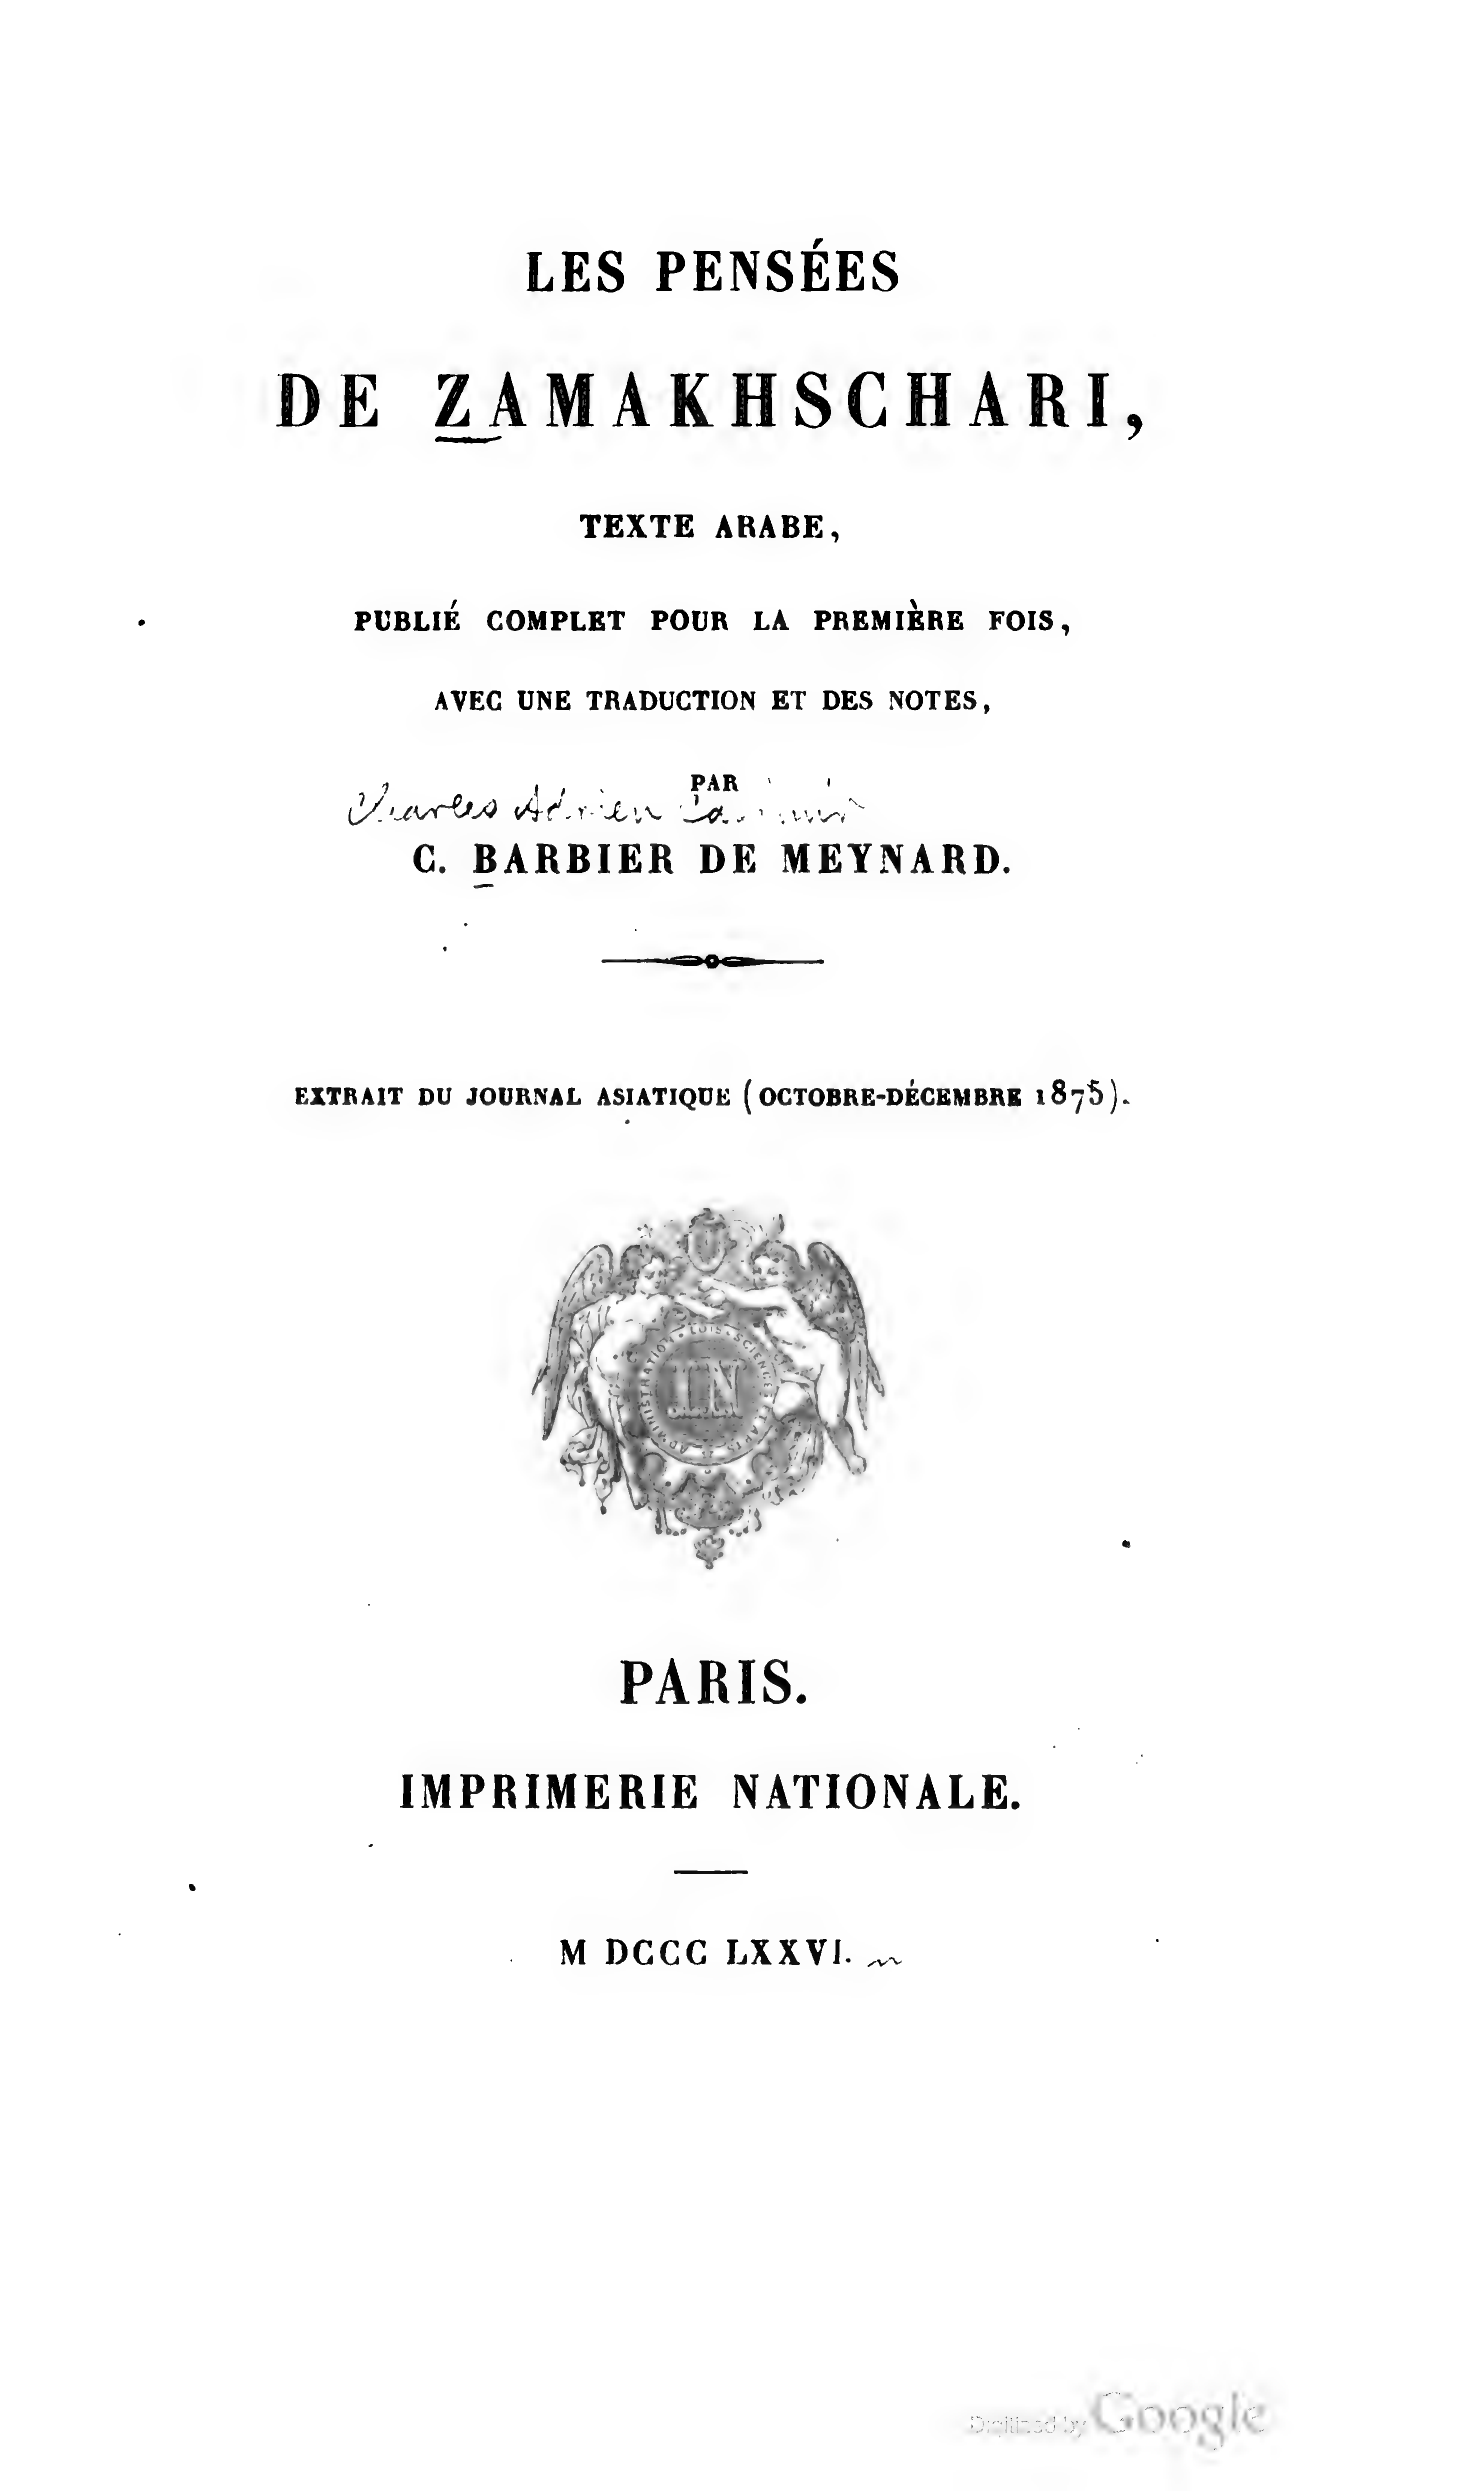 LES PENSÉES
DE ZAMAKHSCHARI,
TEXTE ARABE,
PUBLIÉ COMPLET POUR LA PREMIÈRE FOIS,
AVEC UNE TRADUCTION ET DES NOTES,
PAR
Charles Adrien Casimir
C. BARBIER DE MEYNARD.
EXTRAIT DU JOURNAL ASIATIQUE (OCTOBRE-DÉCEMBRE 1875).
ADMINISTRATION · LOIS · SCIENCES ET ARTS
IN
PARIS.
IMPRIMERIE NATIONALE.
M DCCC LXXVI.
Digitized by Google